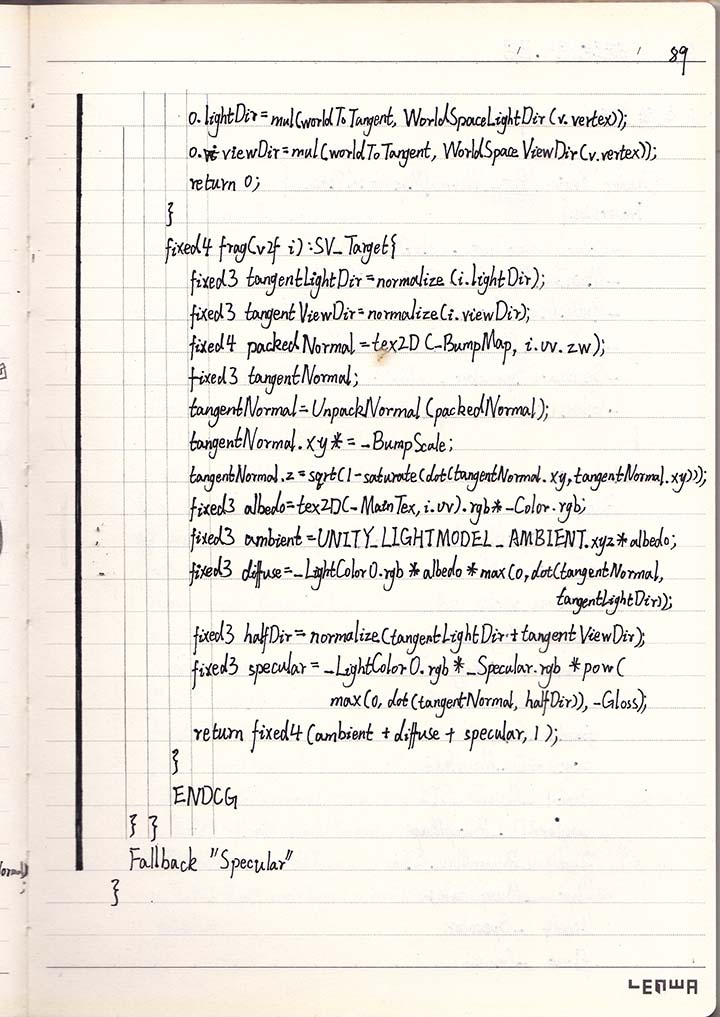 89
o.lightDir=mul(worldToTangent, WorldSpaceLightDir(v.vertex));
o.viewDir=mul(worldToTangent, WorldSpaceViewDir(v.vertex));
return o;
}
fixed4 frag(v2f i):SV_Target{
fixed3 tangentLightDir=normalize(i.lightDir);
fixed3 tangentViewDir=normalize(i.viewDir);
fixed4 packedNormal=tex2D(_BumpMap, i.uv.zw);
fixed3 tangentNormal;
tangentNormal=UnpackNormal(packedNormal);
tangentNormal.xy*=_BumpScale;
tangentNormal.z=sqrt(1-saturate(dot(tangentNormal.xy,tangentNormal.xy)));
fixed3 albedo=tex2D(_MainTex,i.uv).rgb*_Color.rgb;
fixed3 ambient=UNITY_LIGHTMODEL_AMBIENT.xyz*albedo;
fixed3 diffuse=_LightColor0.rgb*albedo*max(0,dot(tangentNormal,
tangentLightDir));
fixed3 halfDir=normalize(tangentLightDir+tangentViewDir);
fixed3 specular=_LightColor0.rgb*_Specular.rgb*pow(
max(0,dot(tangentNormal, halfDir)),_Gloss);
return fixed4(ambient + diffuse + specular, 1);
}
ENDCG
} }
Fallback "Specular"
}